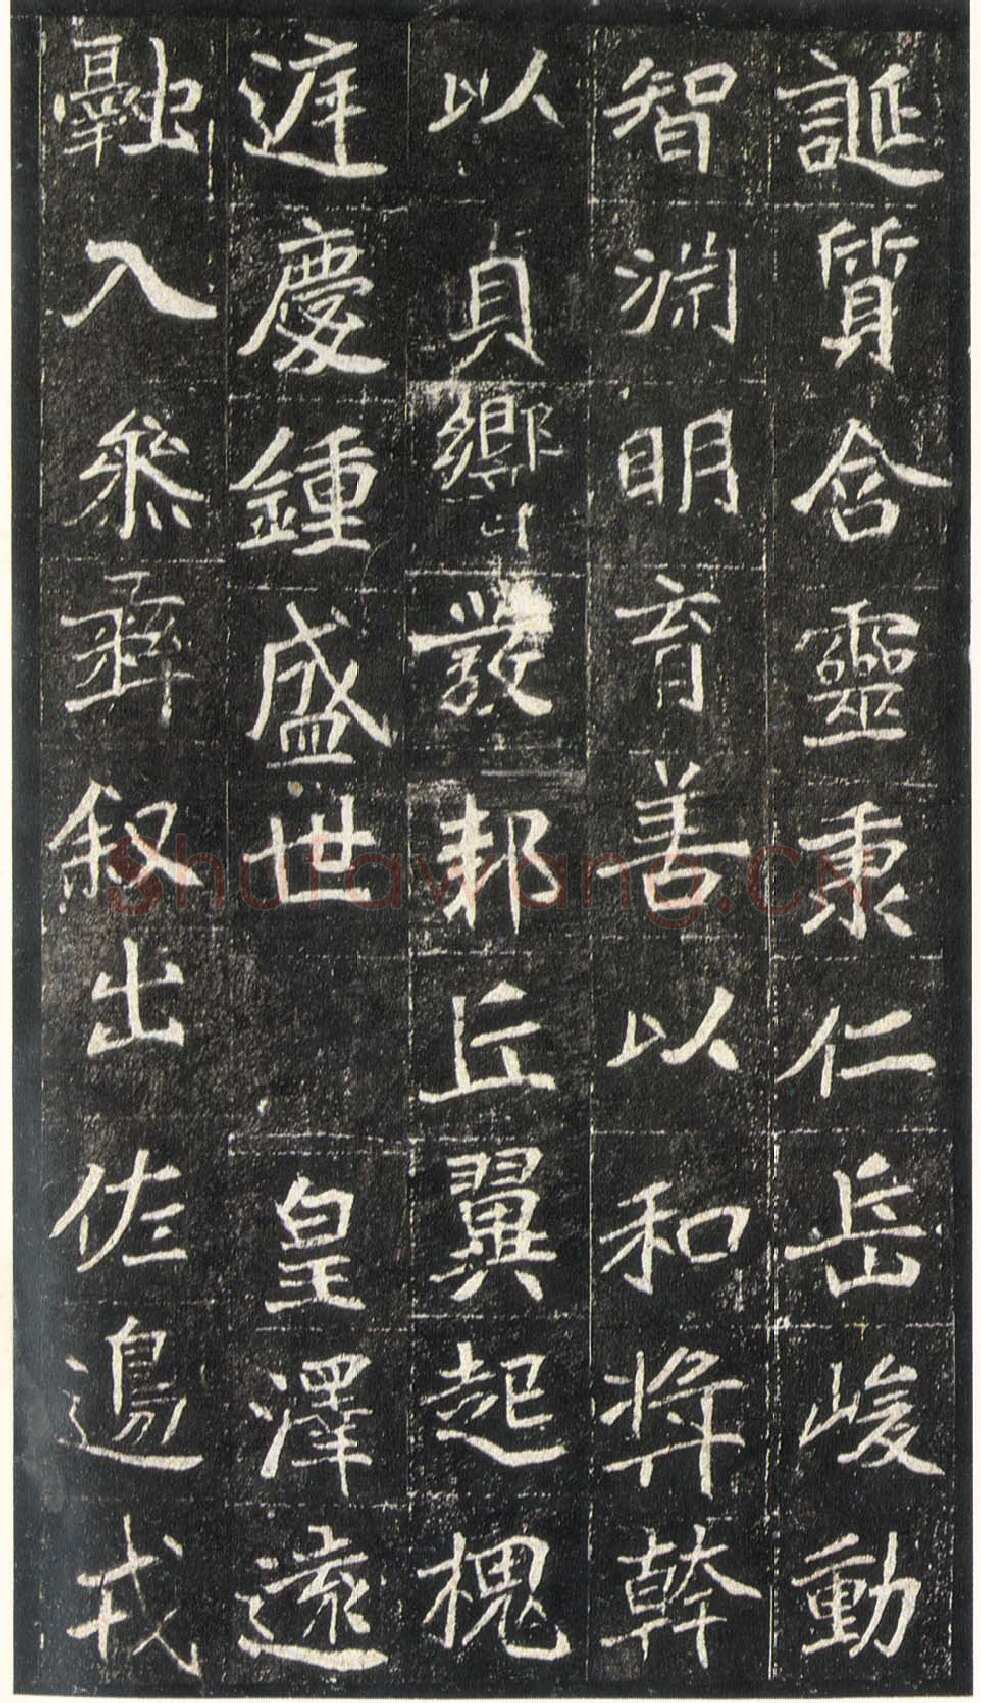 誕質含靈秉仁岳峻動
智淵明育善以和將幹
以貞響發邦丘翼起槐
庭慶鍾盛世皇澤遠
融入參彝敘出佐邊戎
ShuTaWang.CN